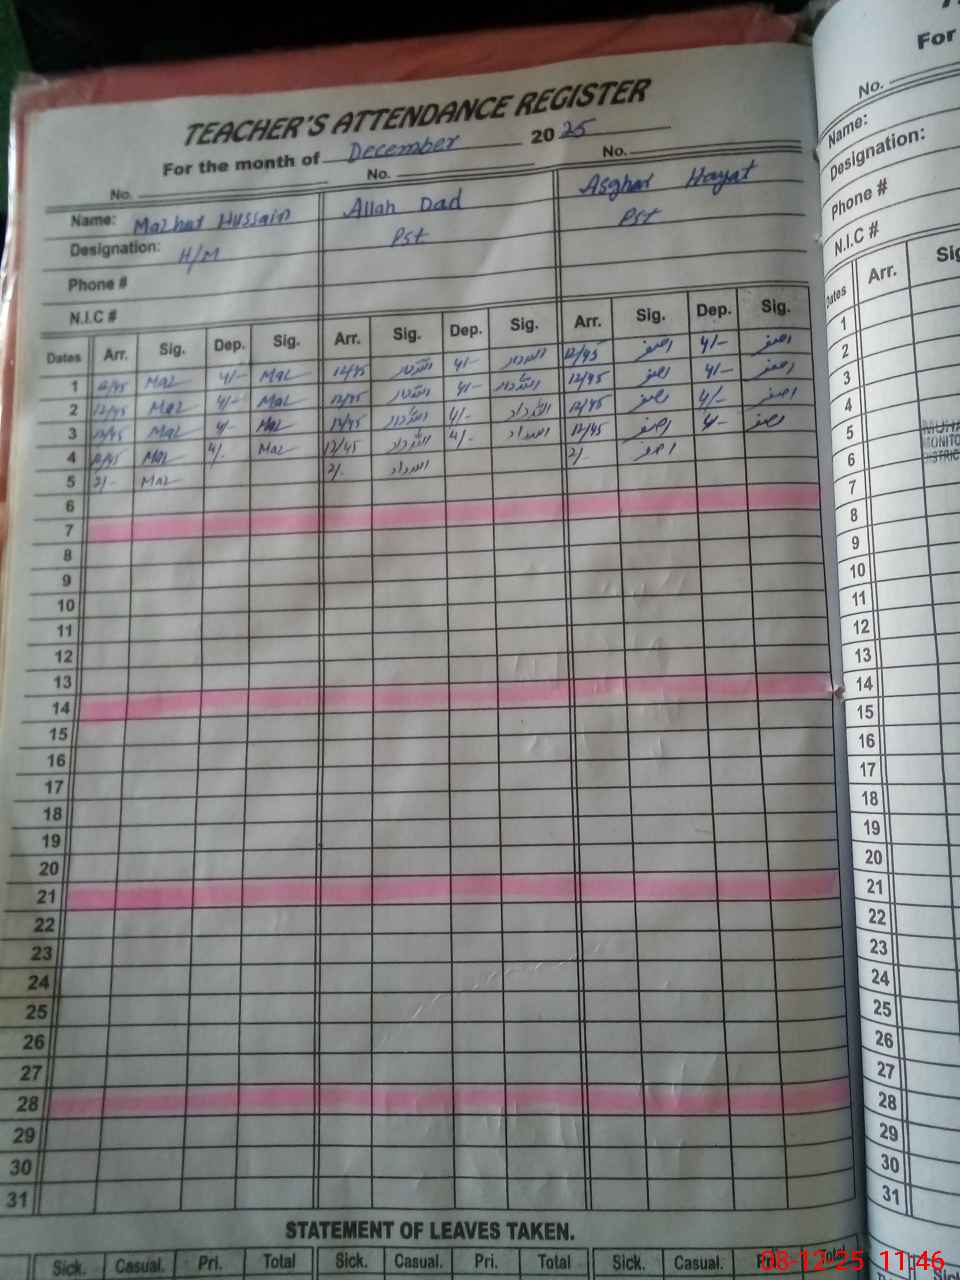 TEACHER'S ATTENDANCE REGISTER
For the month of December 2025
No. No. No.
Name: Mazhar Hussain Allah Dad Asghar Hayat
Designation: H/M Pst Pst
Phone #
N.I.C #
Dates Arr. Sig. Dep. Sig. Arr. Sig. Dep. Sig. Arr. Sig. Dep. Sig.
1 12/45 Maz 4/- Maz 12/45 اللہ داد 4/- اللہ داد 12/45 اصغر 4/- اصغر
2 12/45 Maz 4/- Maz 12/45 اللہ داد 4/- اللہ داد 12/45 اصغر 4/- اصغر
3 12/45 Maz 4/- Maz 12/45 اللہ داد 4/- اللہ داد 12/45 اصغر 4/- اصغر
4 12/45 Maz 4/- Maz 12/45 اللہ داد 4/- اللہ داد 12/45 اصغر 4/- اصغر
5 2/- Maz 2/- اللہ داد 2/- اصغر
6
7
8
9
10
11
12
13
14
15
16
17
18
19
20
21
22
23
24
25
26
27
28
29
30
31
STATEMENT OF LEAVES TAKEN.
Sick. Casual. Pri. Total Sick. Casual. Pri. Total Sick. Casual. Pri. Total
For
No.
Name:
Designation:
Phone #
N.I.C #
Dates Arr.
1
2
3
4
5
6
7
8
9
10
11
12
13
14
15
16
17
18
19
20
21
22
23
24
25
26
27
28
29
30
31
08-12-25 11:46